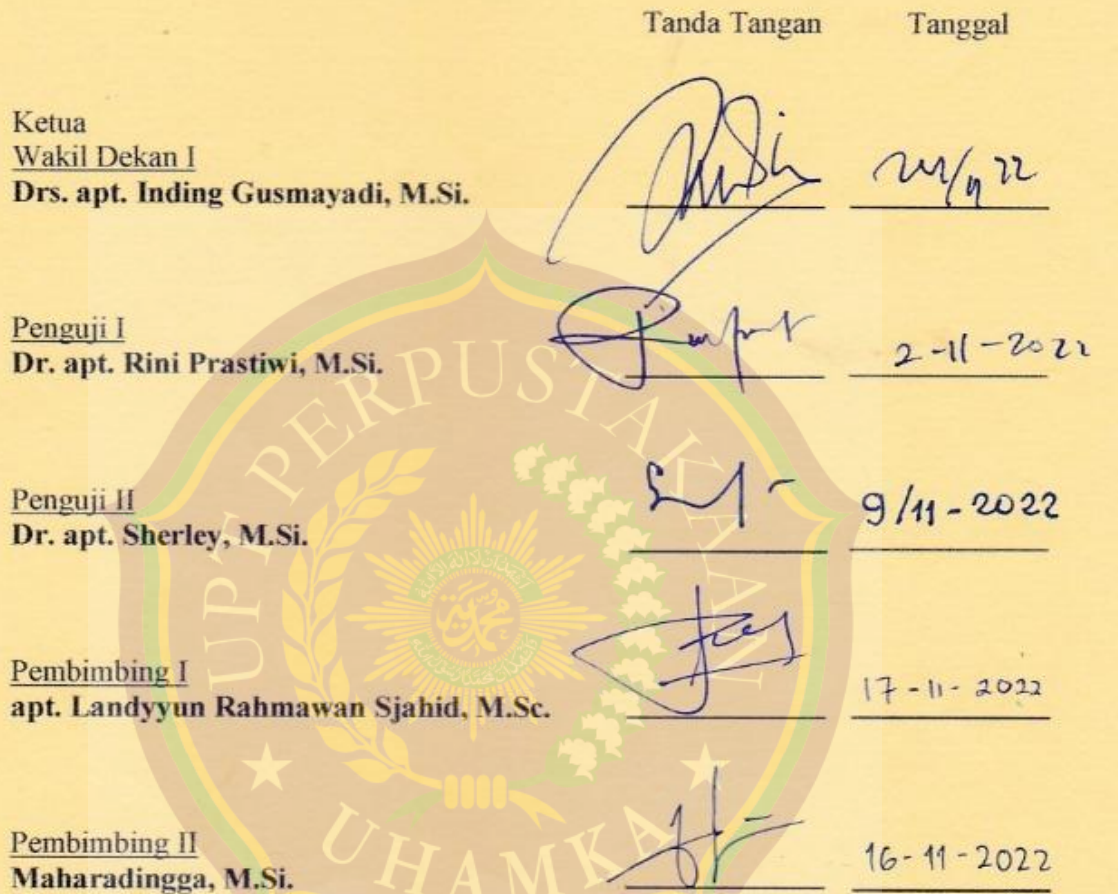 Tanda Tangan Tanggal
Ketua
Wakil Dekan I
Drs. apt. Inding Gusmayadi, M.Si.
Penguji I
Dr. apt. Rini Prastiwi, M.Si.
2-11-2022
Penguji II
Dr. apt. Sherley, M.Si.
9/11-2022
Pembimbing I
apt. Landyyun Rahmawan Sjahid, M.Sc.
17-11-2022
Pembimbing II
Maharadingga, M.Si.
16-11-2022
UPT PERPUSTAKAAN
UHAMKA